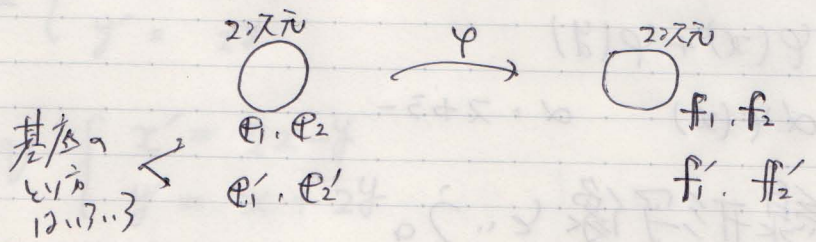 2次元 φ 2次元
e₁, e₂ f₁, f₂
基底の
とり方
はいろいろ
e₁′, e₂′ f₁′, f₂′